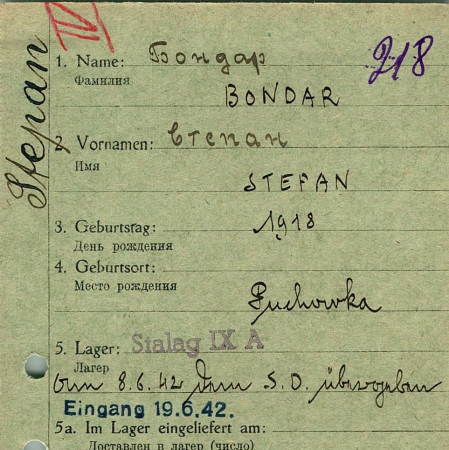 Stepan
IV
218
1. Name: Бондар
Фамилия
BONDAR
2. Vornamen: Степан
Имя
STEFAN
3. Geburtstag: 1918
День рождения
4. Geburtsort:
Место рождения
Puchowka
5. Lager: Stalag IX A
Лагер
am 8.6.42 dem S.D. übergeben
Eingang 19.6.42.
5a. Im Lager eingeliefert am:
Доставлен в лагер (число)